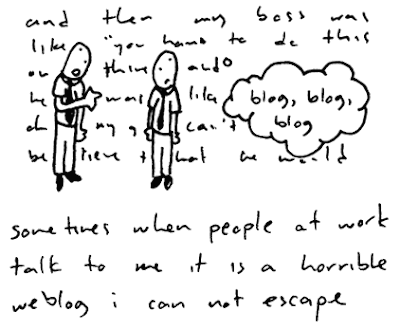 and then my boss was
like "you have to do this
thing and
he was like
oh my can't
that he would
blog, blog,
blog
sometimes when people at work
talk to me it is a horrible
weblog i can not escape